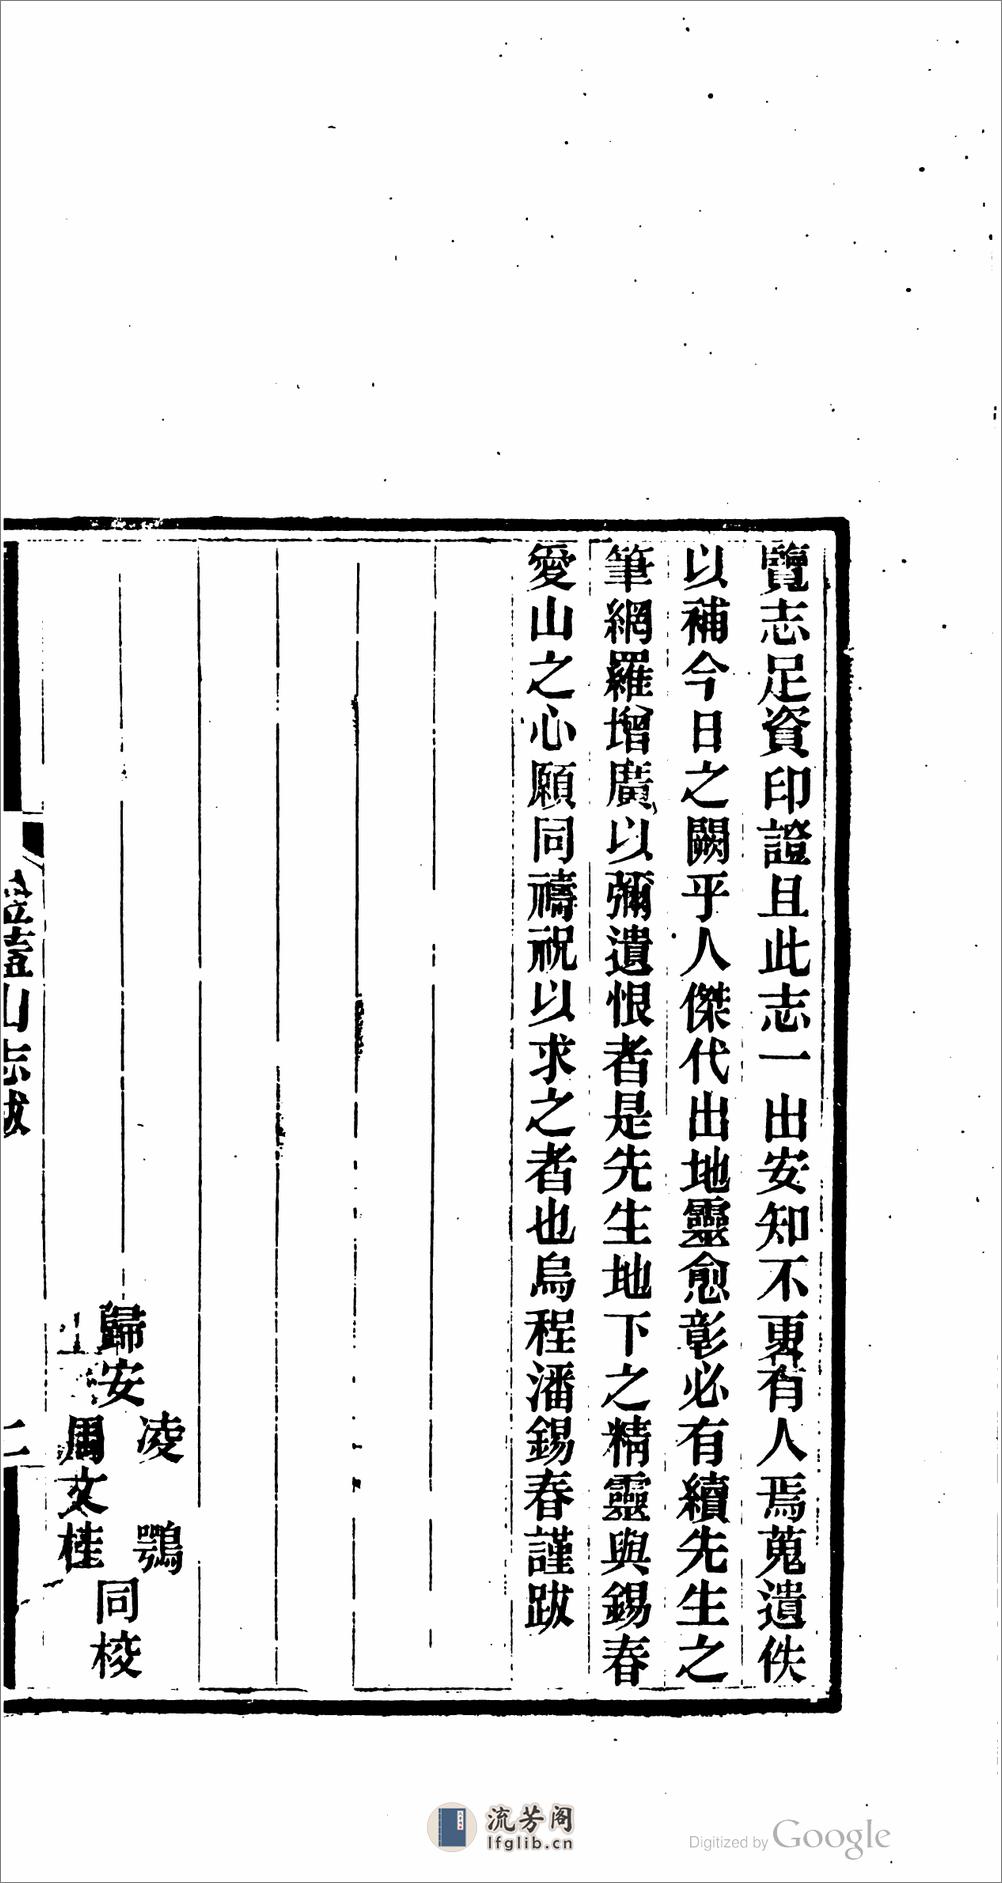 覽志足資印證且此志一出安知不更有人焉蒐遺佚
以補今日之闕乎人傑代出地靈愈彰必有續先生之
筆網羅增廣以彌遺恨者是先生地下之精靈與錫春
愛山之心願同禱祝以求之者也烏程潘錫春謹跋
歸安
凌鶚
周文桂
同校
金蓋山志跋
二
流芳阁
lfglib.cn
Digitized by Google